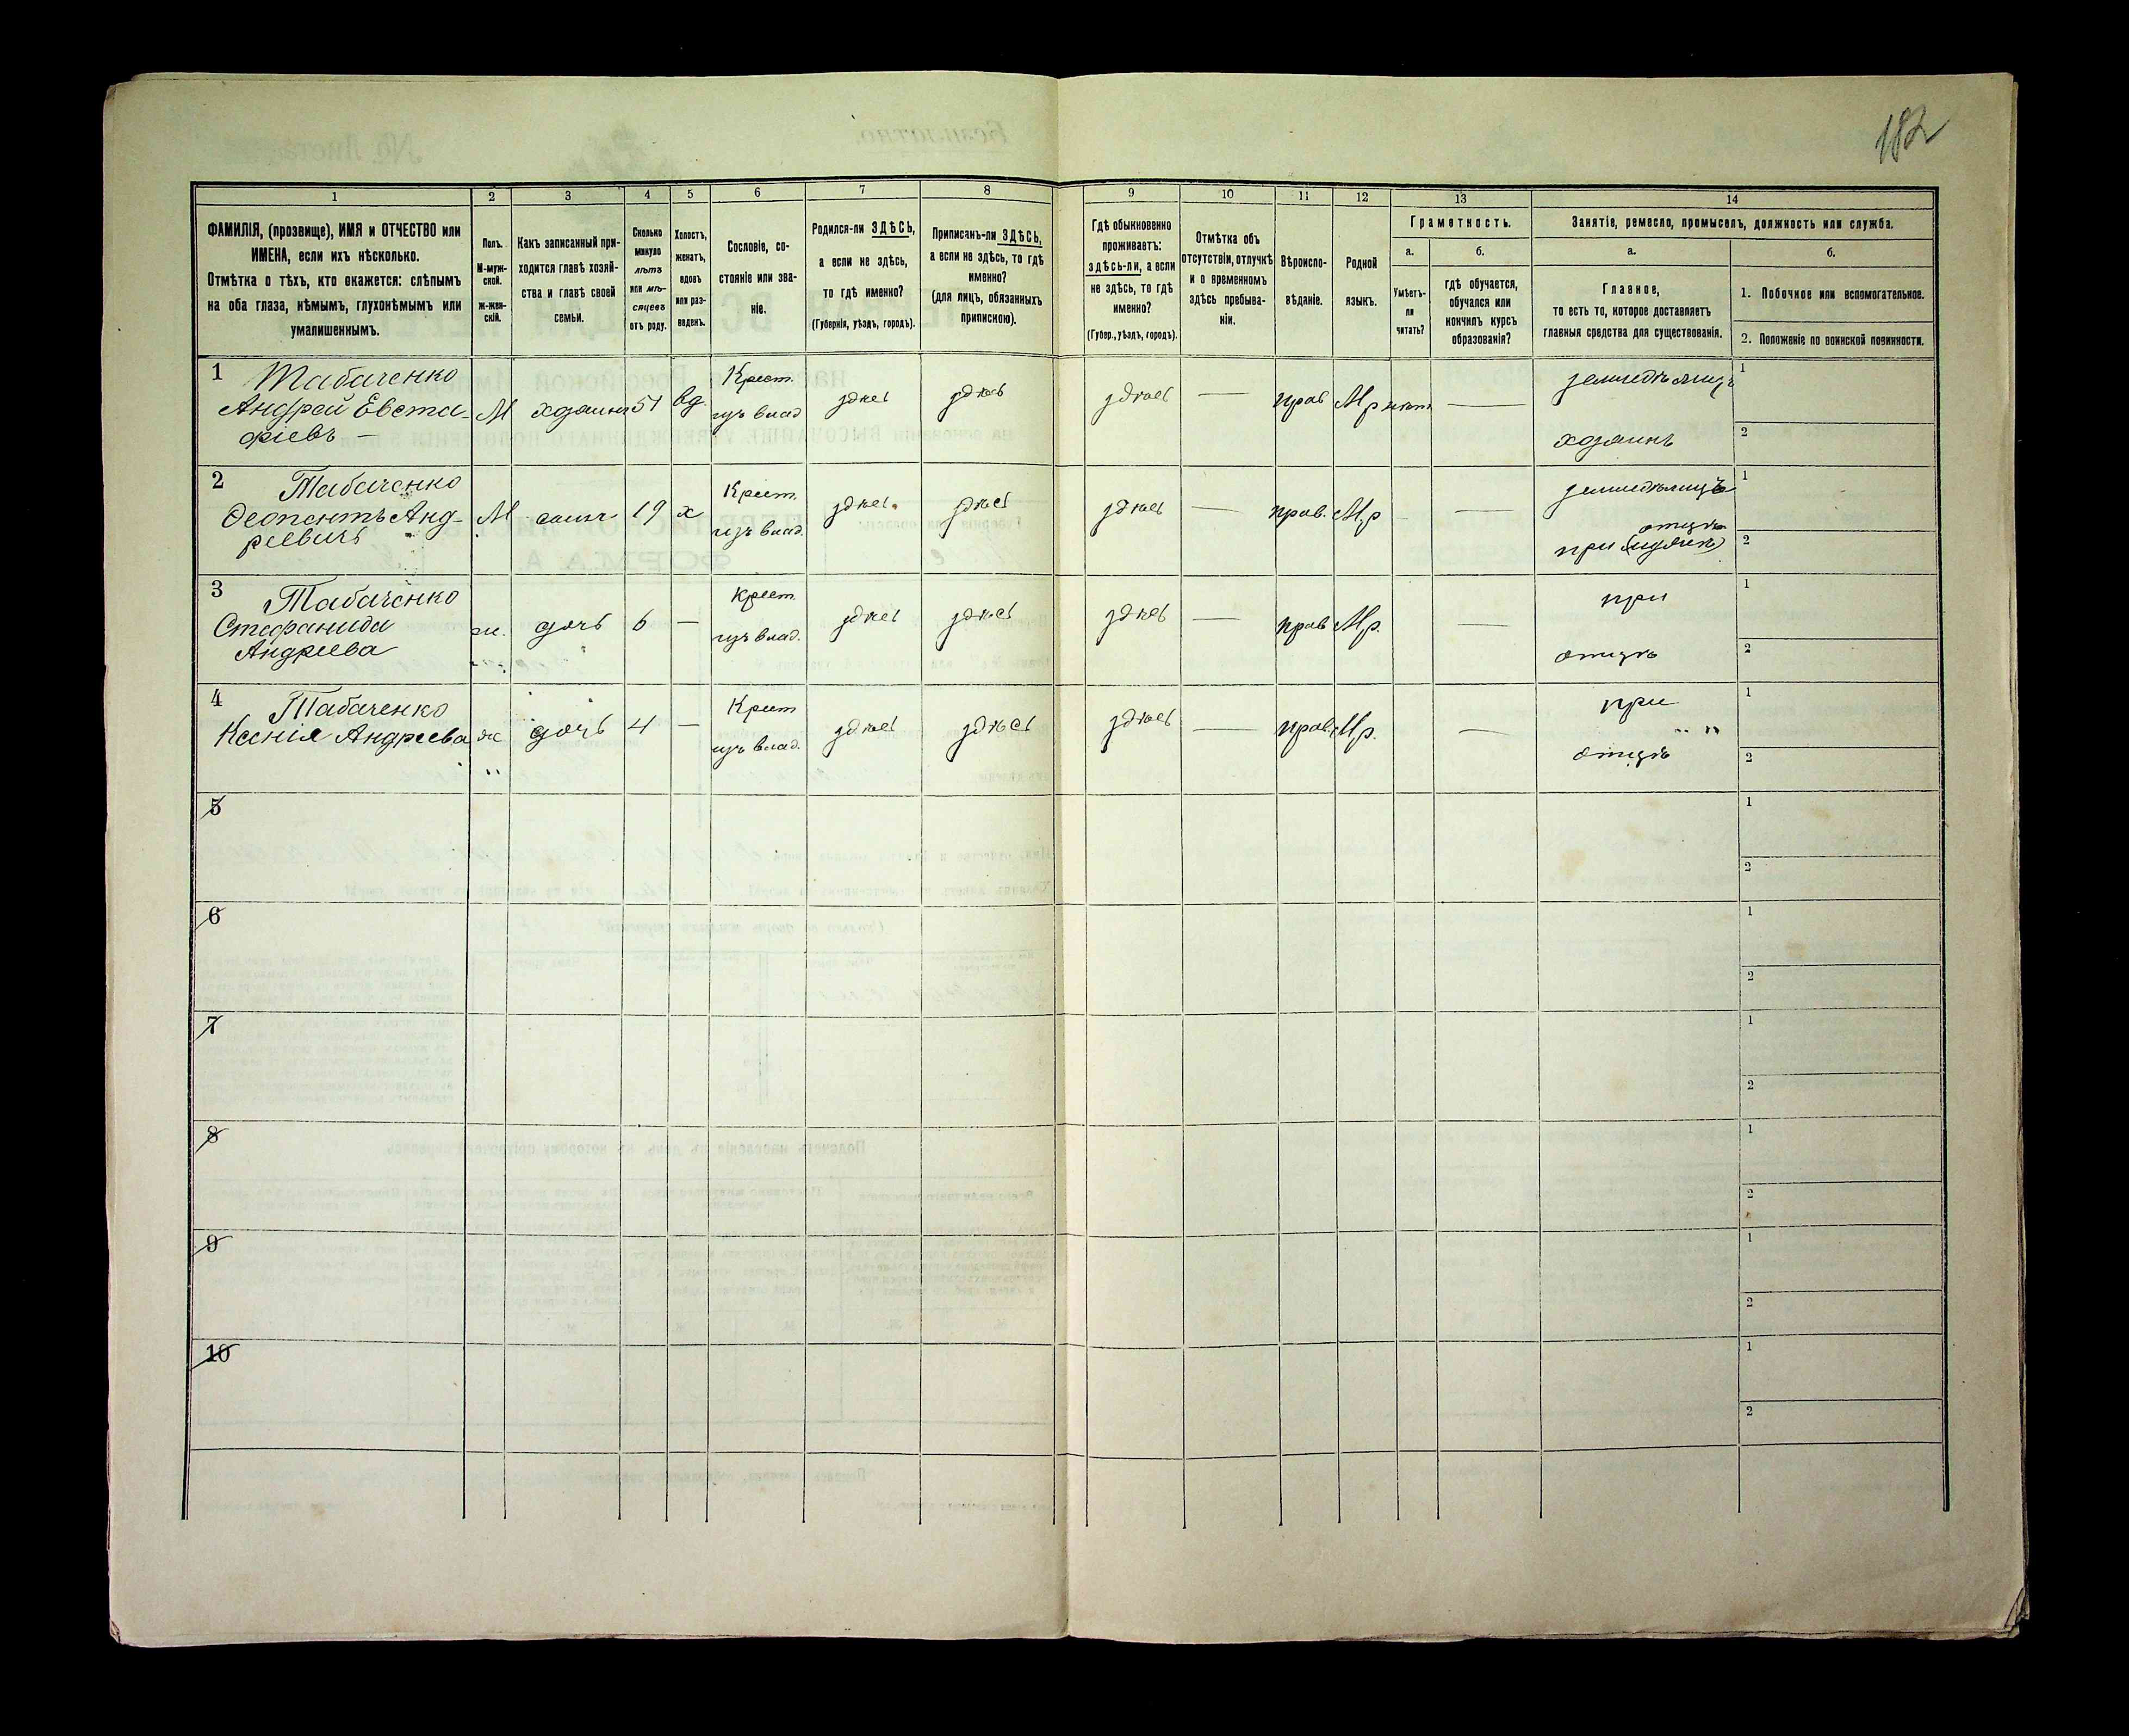 182
1
2
3
4
5
6
7
8
9
10
11
12
13
14
ФАМИЛІЯ, (прозвище), ИМЯ и ОТЧЕСТВО или
ИМЕНА, если ихъ нѣсколько.
Отмѣтка о тѣхъ, кто окажется: слѣпымъ
на оба глаза, нѣмымъ, глухонѣмымъ или
умалишеннымъ.
Полъ.
М-муж-
ской.
ж-жен-
скій.
Какъ записанный при-
ходится главѣ хозяй-
ства и главѣ своей
семьи.
Сколько
минуло
лѣтъ
или мѣ-
сяцевъ
отъ роду.
Холостъ,
женатъ,
вдовъ
или раз-
веденъ.
Сословіе, со-
стояніе или зва-
ніе.
Родился-ли ЗДѢСЬ,
а если не здѣсь,
то гдѣ именно?
(Губернія, уѣздъ, городъ).
Приписанъ-ли ЗДѢСЬ,
а если не здѣсь, то гдѣ
именно?
(для лицъ, обязанныхъ
припискою).
Гдѣ обыкновенно
проживаетъ:
здѣсь-ли, а если
не здѣсь, то гдѣ
именно?
(Губер., уѣздъ, городъ).
Отмѣтка объ
отсутствіи, отлучкѣ
и о временномъ
здѣсь пребыва-
ніи.
Вѣроиспо-
вѣданіе.
Родной
языкъ.
Грамотность.
а.
Умѣетъ-
ли
читать?
б.
гдѣ обучается,
обучался или
кончилъ курсъ
образованія?
Занятіе, ремесло, промыселъ, должность или служба.
а.
Главное,
то есть то, которое доставляетъ
главныя средства для существованія.
б.
1. Побочное или вспомогательное.
2. Положеніе по воинской повинности.
1 Табаченко
Андрей Евста-
фіевъ —
М
хозяинъ
51
вд.
Крест.
изъ влад
здѣсь
здѣсь
здѣсь
—
прав
Мр
нѣтъ
—
земледѣлецъ
хозяинъ
1
2
2 Табаченко
Феопентъ Анд-
реевичъ
М
сынъ
19
х
Крест.
изъ влад.
здѣсь
здѣсь
здѣсь
—
прав.
Мр
—
земледѣлецъ
отцѣ
при
1
2
3 Табаченко
Стефанида
Андреева
ж.
дочь
6
—
Крест.
изъ влад.
здѣсь
здѣсь
здѣсь
—
прав
Мр.
—
при
отцѣ
1
2
4 Табаченко
Ксенія Андреева
ж
дочь
4
—
Крест
изъ влад.
здѣсь
здѣсь
здѣсь
—
прав.
Мр.
—
при
отцѣ
1
2
5
1
2
6
1
2
7
1
2
8
1
2
9
1
2
10
1
2